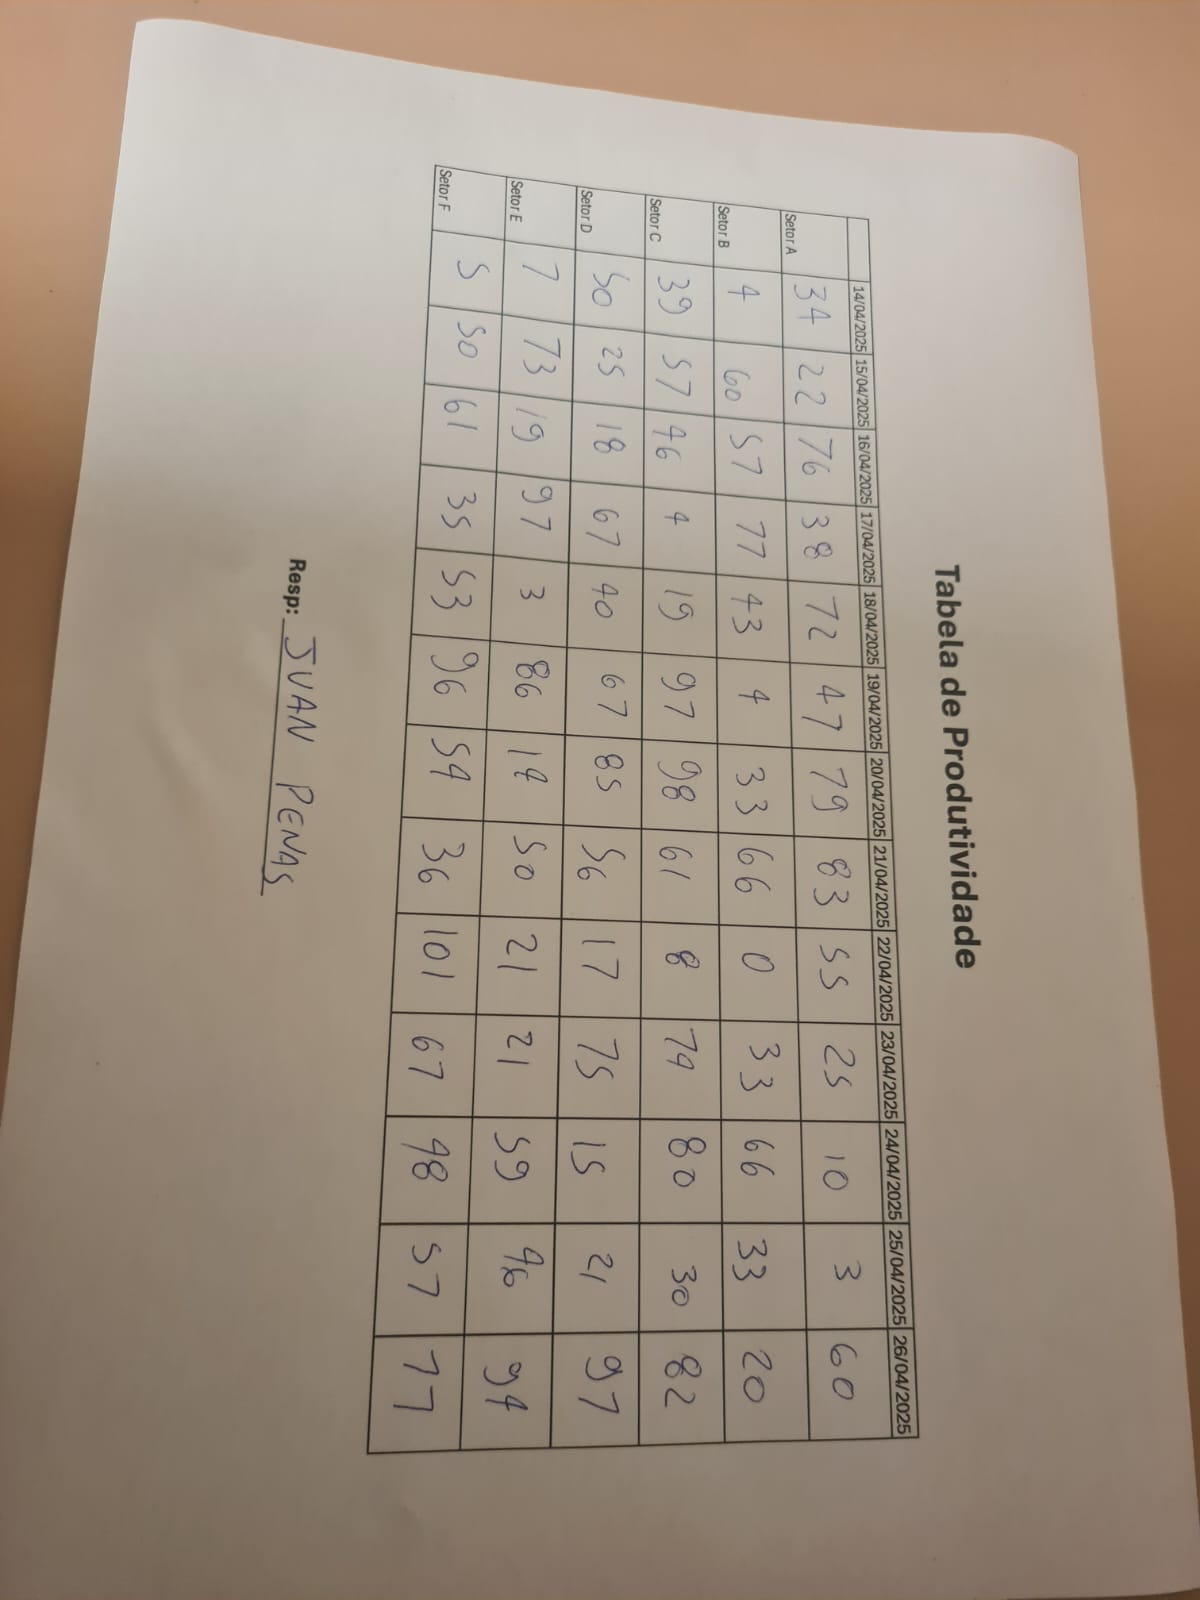 Tabela de Produtividade
14/04/2025 15/04/2025 16/04/2025 17/04/2025 18/04/2025 19/04/2025 20/04/2025 21/04/2025 22/04/2025 23/04/2025 24/04/2025 25/04/2025 26/04/2025
Setor A 34 22 76 38 72 47 79 83 55 25 10 3 60
Setor B 4 60 57 77 43 4 33 66 0 33 66 33 20
Setor C 39 57 46 4 19 97 98 61 8 74 80 30 82
Setor D 50 25 18 67 40 67 85 56 17 75 15 21 97
Setor E 7 73 19 97 3 86 14 50 21 21 59 46 94
Setor F 5 50 61 35 53 96 54 36 101 67 48 57 77
Resp: JUAN PENAS